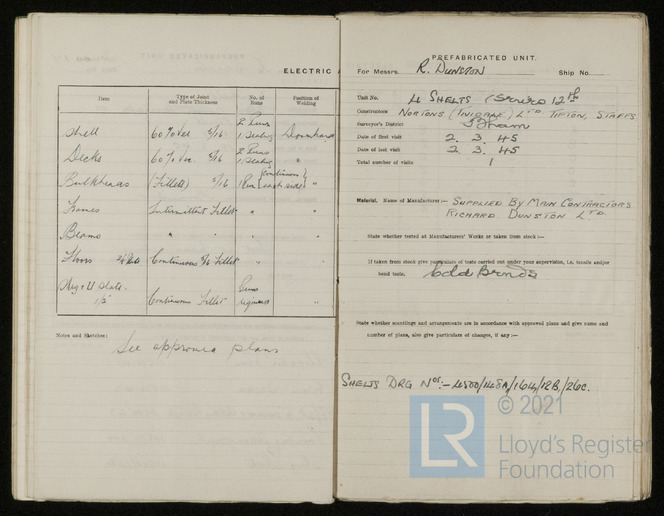 ELECTRIC
Item
Type of Joint and Plate Thickness
No. of Runs
Position of Welding
Shell 60° Vee 5/16 2 Runs 1 Sealing Downhand
Decks 60° Vee 5/16 2 Runs 1 Sealing "
Bulkheads (Fillet) 5/16 1 Run (continuous each side) "
Frames Intermittent Fillet " "
Beams " " " "
Floors Continuous Fillet " "
Continuous Fillet
Notes and Sketches:
See approved plans
PREFABRICATED UNIT.
For Messrs. R. Dunston Ship No.
Unit No. 4 SHELTS
Constructors NORTONS (TIVIDALE) LTD. TIPTON, STAFFS
Surveyor's District
Date of first visit 2. 3. 45
Date of last visit 2. 3. 45
Total number of visits 1
Material. Name of Manufacturer:— SUPPLIED BY MAIN CONTRACTORS
RICHARD DUNSTON LTD.
State whether tested at Manufacturers' Works or taken from stock:—
If taken from stock give particulars of tests carried out under your supervision, i.e. tensile and/or
bend tests. Cold Bends
State whether scantlings and arrangements are in accordance with approved plans and give name and
number of plans, also give particulars of changes, if any:—
SHELTS DRG Nos:-
© 2021
LR
Lloyd's Register
Foundation